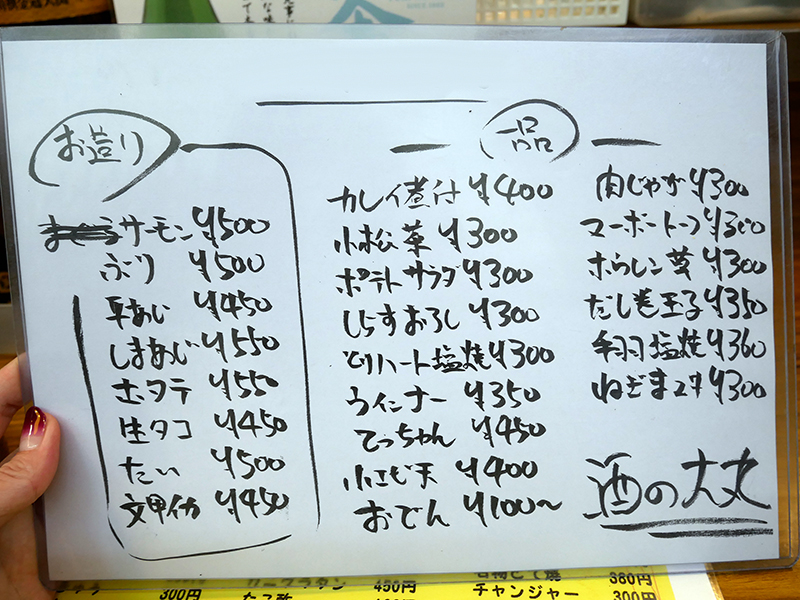 お造り
サーモン ¥500
ぶり ¥500
平あじ ¥450
しまあじ ¥550
ホタテ ¥550
生タコ ¥450
たい ¥500
文甲イカ ¥450
一品
カレイ煮付 ¥400
小松菜 ¥300
ポテトサラダ ¥300
しらすおろし ¥300
とりハート塩焼 ¥300
ウインナー ¥350
てっちゃん ¥450
小エビ天 ¥400
おでん ¥100〜
肉じゃが ¥300
マーボートーフ ¥300
ホウレン草 ¥300
だし巻玉子 ¥350
手羽塩焼 ¥360
ねぎま2本 ¥300
酒の大丸
300円
450円
380円
チャンジャー 300円